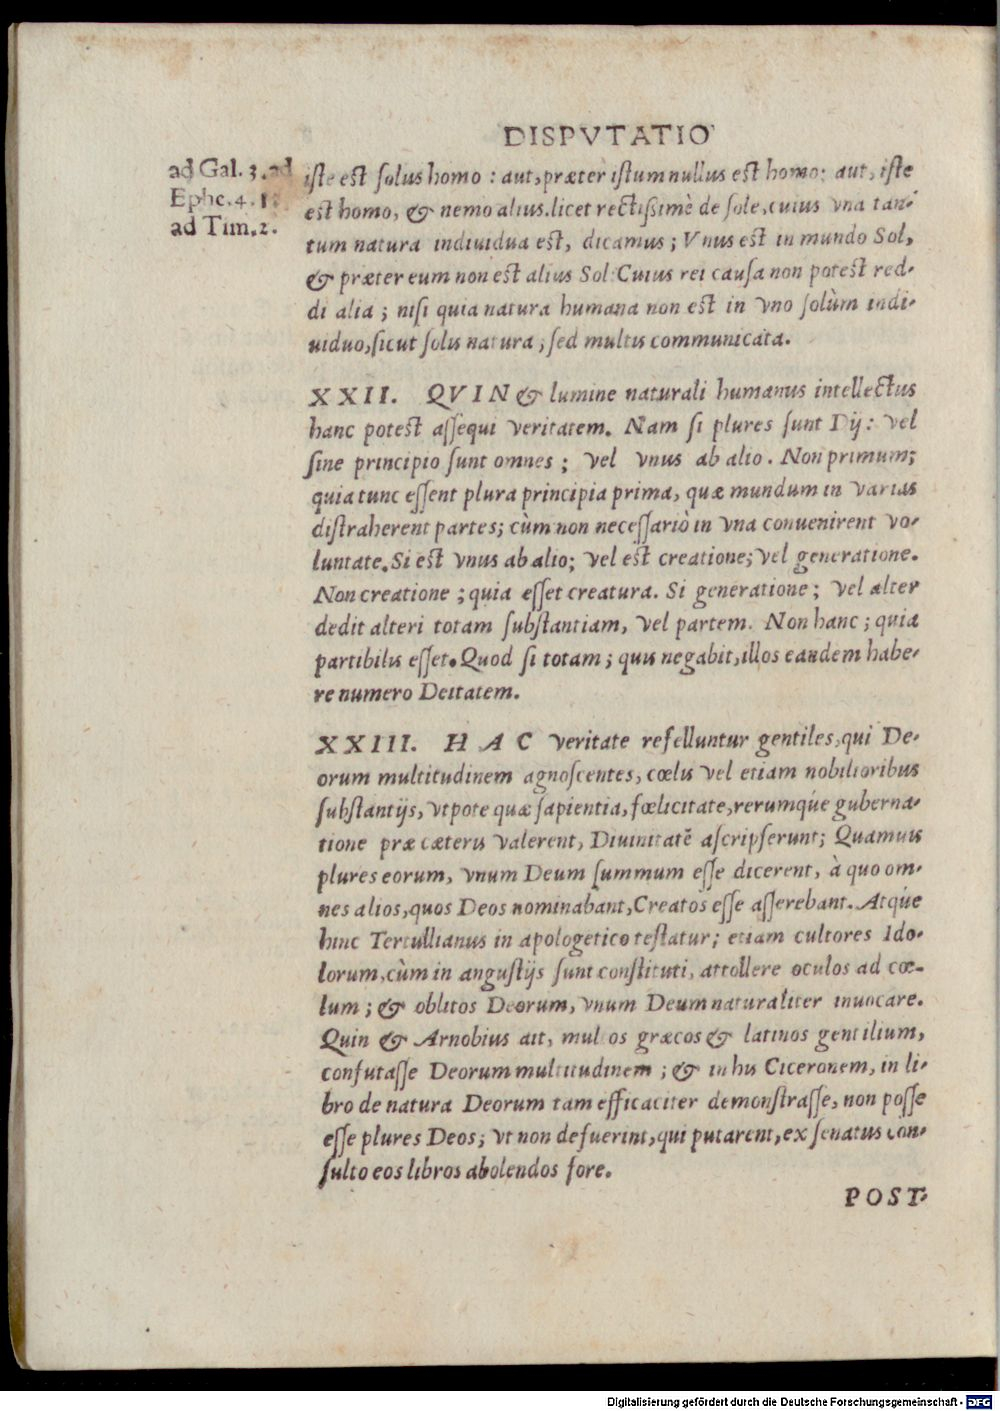 DISPVTATIO
ad Gal. 3. ad
Ephe. 4. 1.
ad Tim. 2.
iste est solus homo : aut, præter istum nullus est homo: aut, iste
est homo, & nemo alius. licet rectissimè de sole, cuius vna tan-
tum natura indiuidua est, dicamus ; Vnus est in mundo Sol,
& præter eum non est alius Sol: Cuius rei causa non potest red-
di alia ; nisi quia natura humana non est in vno solùm indi-
uiduo, sicut solis natura ; sed multis communicata.
XXII. QVIN & lumine naturali humanus intellectus
hanc potest assequi veritatem. Nam si plures sunt Dij: vel
sine principio sunt omnes ; vel vnus ab alio. Non primum;
quia tunc essent plura principia prima, quæ mundum in varias
distraherent partes; cùm non necessariò in vna conuenirent vo-
luntate. Si est vnus ab alio; vel est creatione; vel generatione.
Non creatione ; quia esset creatura. Si generatione ; vel alter
dedit alteri totam substantiam, vel partem. Non hanc ; quia
partibilis esset. Quod si totam ; quis negabit, illos eandem habe-
re numero Deitatem.
XXIII. HAC veritate refelluntur gentiles, qui De-
orum multitudinem agnoscentes, cœlis vel etiam nobilioribus
substantijs, vtpote quæ sapientia, fœlicitate, rerumq́ue guberna-
tione præ cæteris valerent, Diuinitatẽ ascripserunt; Quamuis
plures eorum, vnum Deum summum esse dicerent, à quo om-
nes alios, quos Deos nominabant, Creatos esse asserebant. Atq́ue
hinc Tertullianus in apologetico testatur; etiam cultores Ido-
lorum, cùm in angustijs sunt constituti, attollere oculos ad cœ-
lum ; & oblitos Deorum, vnum Deum naturaliter inuocare.
Quin & Arnobius ait, multos græcos & latinos gentilium,
confutasse Deorum multitudinem ; & in his Ciceronem, in li-
bro de natura Deorum tam efficaciter demonstrasse, non posse
esse plures Deos; vt non defuerint, qui putarent, ex senatus con-
sulto eos libros abolendos fore.
POST-
Digitalisierung gefördert durch die Deutsche Forschungsgemeinschaft - DFG